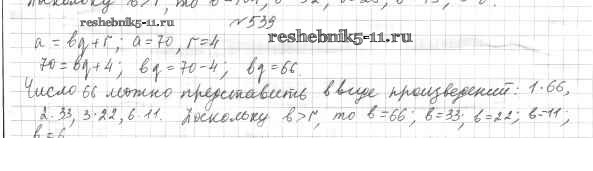 №539
reshebnik5-11.ru
a = bq + r; a = 70, r = 4
reshebnik5-11.ru
70 = bq + 4; bq = 70 - 4; bq = 66.
Число 66 можно представить в виде произведений: 1·66,
2·33, 3·22, 6·11. Поскольку b > r, то b = 66; b = 33; b = 22; b = 11;
b = 6